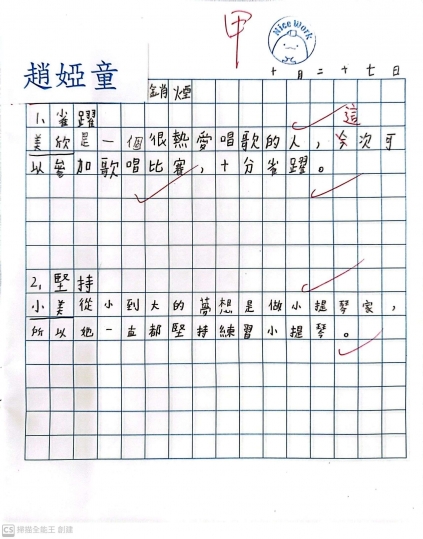 甲
Nice Work
十月二十七日
趙婭童
硝煙
1、雀躍
這
美欣是一個很熱愛唱歌的人，今次可
以參加歌唱比賽，十分雀躍。
2、堅持
小美從小到大的夢想是做小提琴家，
所以她一直都堅持練習小提琴。
CS 掃描全能王 創建